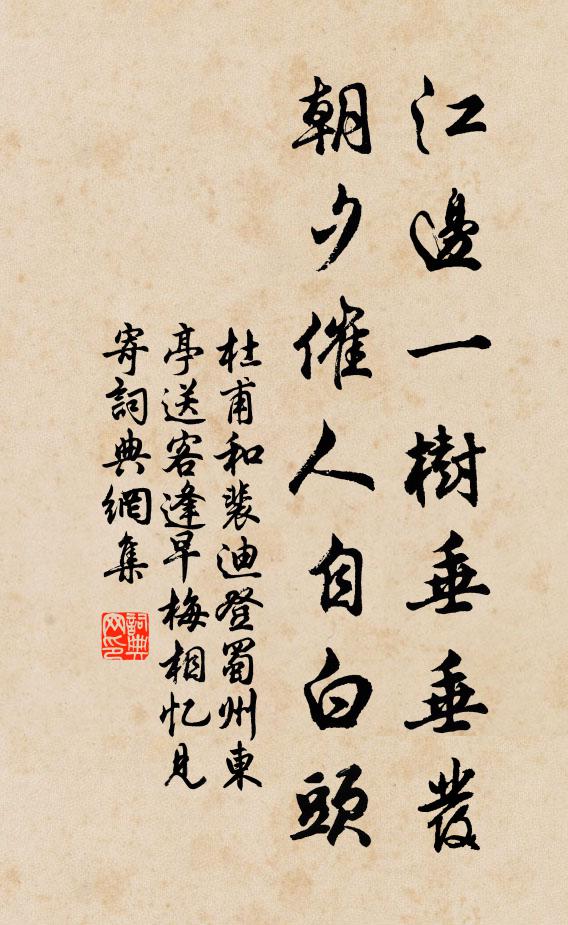 江邊一樹垂垂發
朝夕催人自白頭
杜甫和裴迪登蜀州東
亭送客逢早梅相忆見
寄詞典網集
詞典
网印